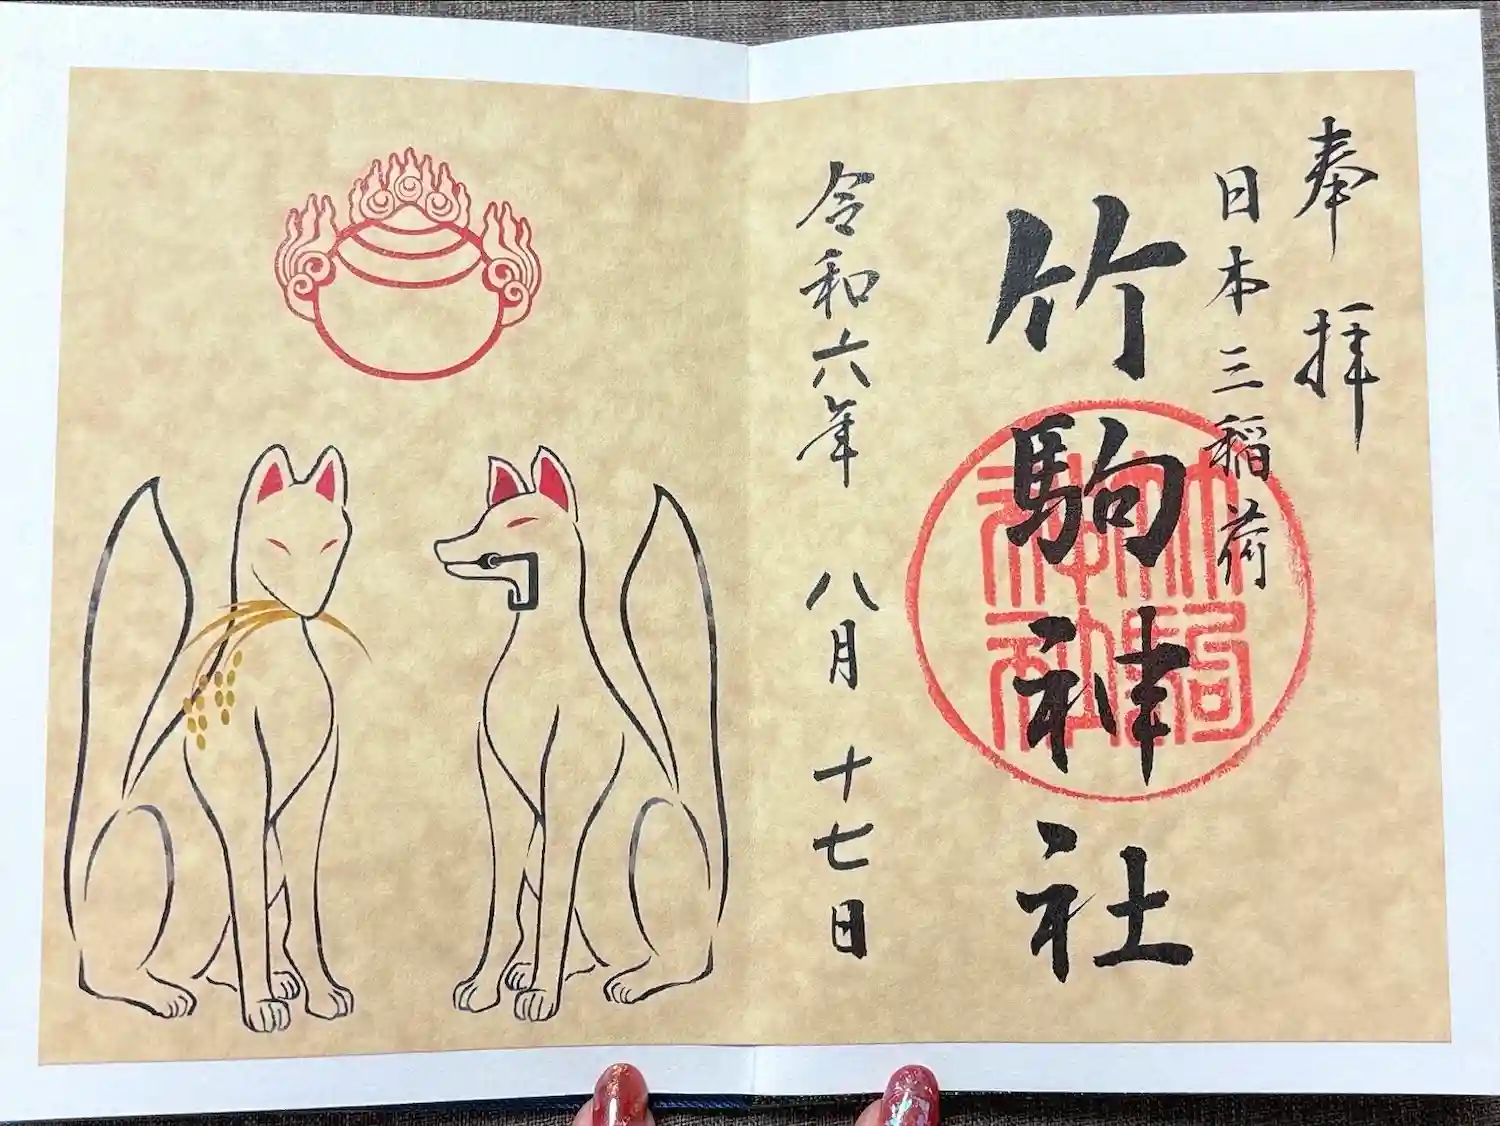 奉拝
日本三稲荷
竹駒神社
竹駒神社
令和六年 八月十七日